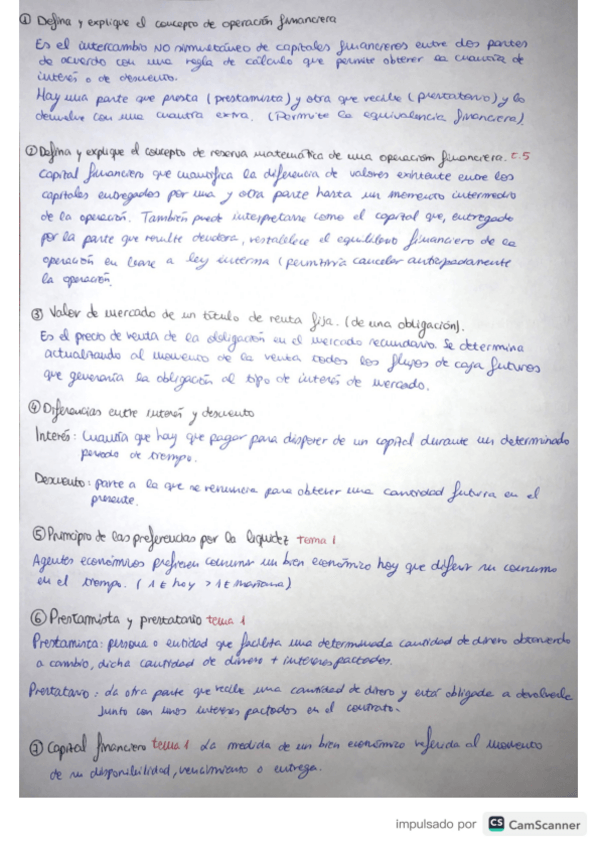 ① Defina y explique el concepto de operación financiera
Es el intercambio NO simultáneo de capitales financieros entre dos partes
de acuerdo con una regla de cálculo que permite obtener la cuantía de
interés o de descuento.
Hay una parte que presta (prestamista) y otra que recibe (prestatario) y lo
devuelve con una cuantía extra. (Permite la equivalencia financiera).
② Defina y explique el concepto de reserva matemática de una operación financiera. t.5
Capital financiero que cuantifica la diferencia de valores existente entre los
capitales entregados por una y otra parte hasta un momento intermedio
de la operación. También puede interpretarse como el capital que, entregado
por la parte que resulte deudora, restablece el equilibrio financiero de la
operación en base a ley interna (permitiría cancelar anticipadamente
la operación.
③ Valor de mercado de un título de renta fija. (de una obligación).
Es el precio de venta de la obligación en el mercado secundario. Se determina
actualizando al momento de la venta todos los flujos de caja futuros
que generaría la obligación al tipo de interés de mercado.
④ Diferencias entre interés y descuento
Interés: Cuantía que hay que pagar para disponer de un capital durante un determinado
periodo de tiempo.
Descuento: parte a la que se renuncia para obtener una cantidad futura en el
presente.
⑤ Principio de las preferencias por la liquidez tema 1
Agentes económicos prefieren consumir un bien económico hoy que diferir su consumo
en el tiempo. (1€ hoy > 1€ mañana)
⑥ Prestamista y prestatario tema 1
Prestamista: persona o entidad que facilita una determinada cantidad de dinero obteniendo
a cambio, dicha cantidad de dinero + intereses pactados.
Prestatario: La otra parte que recibe una cantidad de dinero y está obligada a devolverla
junto con unos intereses pactados en el contrato.
⑦ Capital financiero tema 1 La medida de un bien económico referida al momento
de su disponibilidad, vencimiento o entrega.
impulsado por CS CamScanner